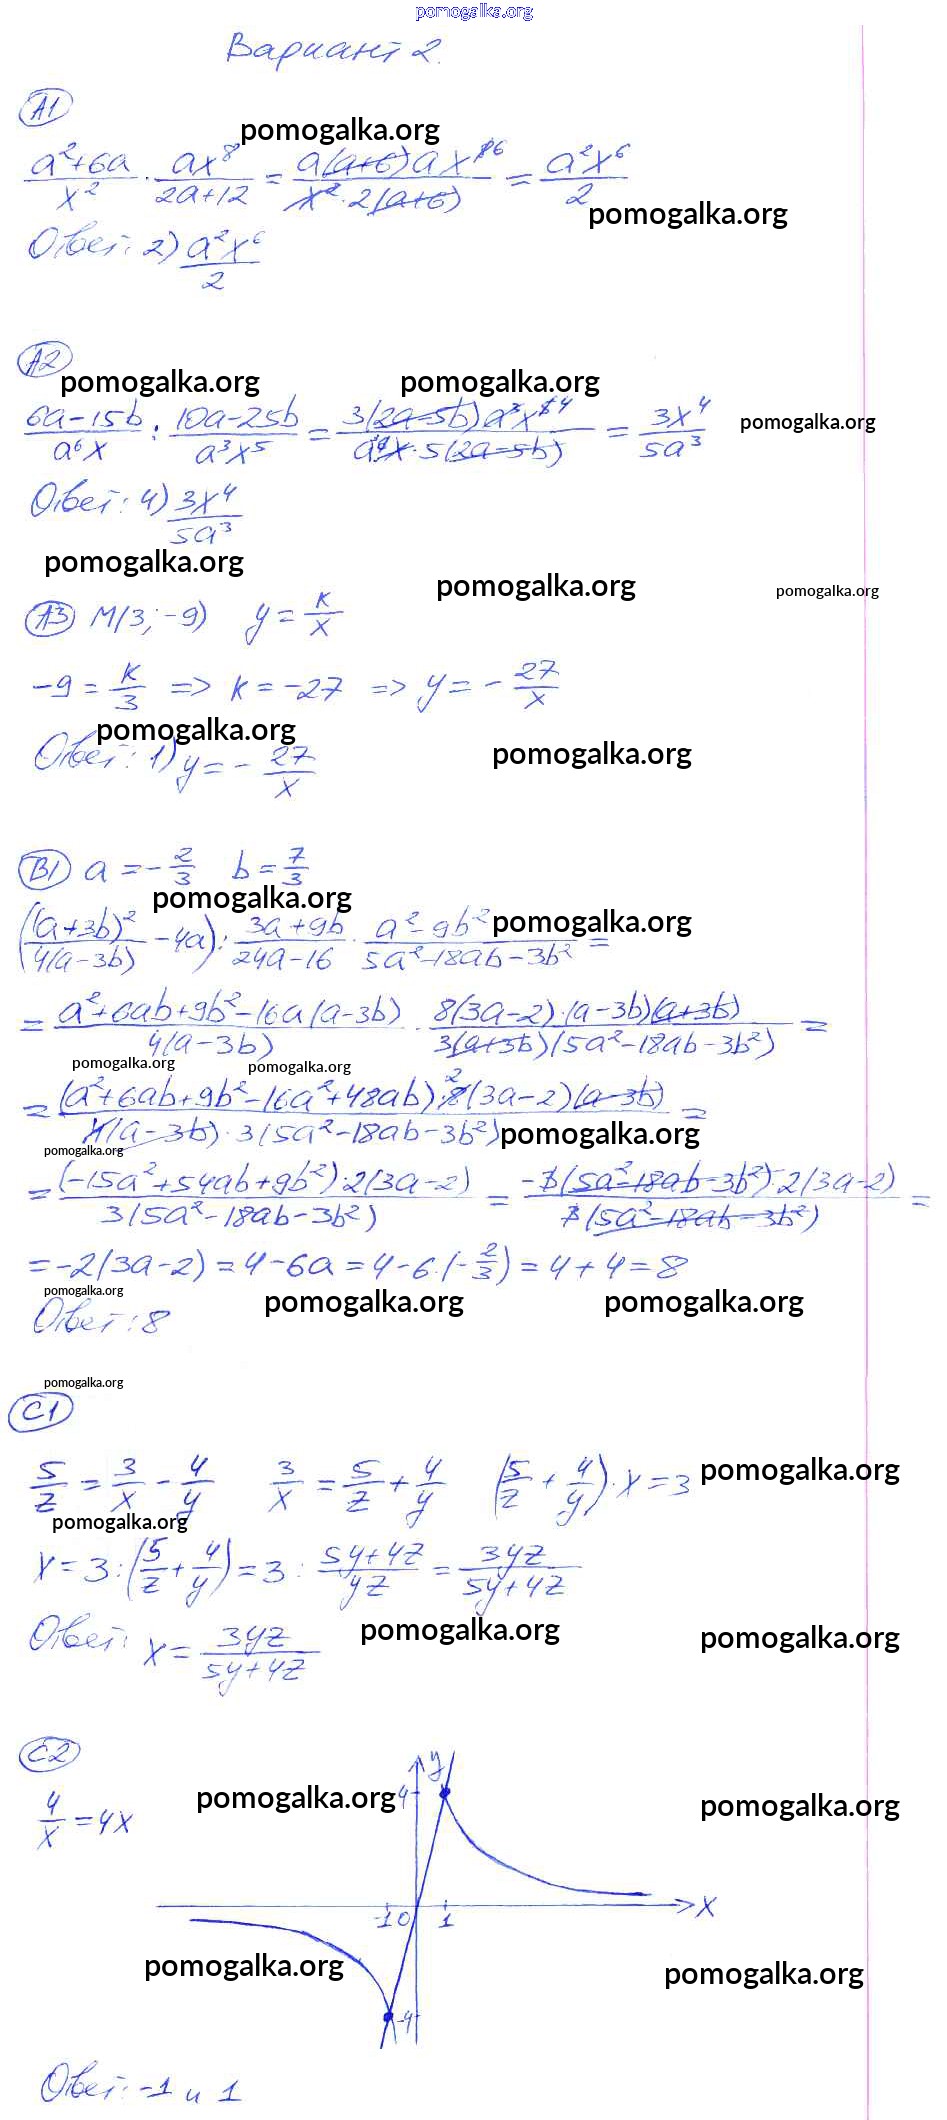 pomogalka.org
Вариант 2.
А1
pomogalka.org
(a²+6a)/x² · ax⁸/(2a+12) = a(a+6)ax⁸⁶/(x²·2(a+6)) = a²x⁶/2
pomogalka.org
Ответ: 2) a²x⁶/2
А2
pomogalka.org pomogalka.org
(6a-15b)/(a⁶x) : (10a-25b)/(a³x⁵) = 3(2a-5b)a³x⁵⁴/(a⁶³x·5(2a-5b)) = 3x⁴/(5a³) pomogalka.org
Ответ: 4) 3x⁴/(5a³)
pomogalka.org pomogalka.org pomogalka.org
А3 М(3; -9) y = k/x
-9 = k/3 => k = -27 => y = - 27/x
pomogalka.org pomogalka.org
Ответ: 1) y = - 27/x
В1 a = - 2/3 b = 7/3
pomogalka.org pomogalka.org
((a+3b)²/(4(a-3b)) - 4a) : (3a+9b)/(24a-16) · (a²-9b²)/(5a²-18ab-3b²) =
= (a²+6ab+9b²-16a(a-3b))/(4(a-3b)) · 8(3a-2)·(a-3b)(a+3b)/(3(a+3b)(5a²-18ab-3b²)) =
pomogalka.org pomogalka.org
= (a²+6ab+9b²-16a²+48ab)·8²(3a-2)(a-3b)/(4(a-3b)·3(5a²-18ab-3b²)) =
pomogalka.org
pomogalka.org
= (-15a²+54ab+9b²)·2(3a-2)/(3(5a²-18ab-3b²)) = -3(5a²-18ab-3b²)·2(3a-2)/(3(5a²-18ab-3b²)) =
= -2(3a-2) = 4-6a = 4-6·(-2/3) = 4+4 = 8
pomogalka.org pomogalka.org pomogalka.org
Ответ: 8
pomogalka.org
С1
5/z = 3/x - 4/y 3/x = 5/z + 4/y (5/z + 4/y)·x = 3 pomogalka.org
pomogalka.org
x = 3:(5/z + 4/y) = 3 : (5y+4z)/(yz) = 3yz/(5y+4z)
pomogalka.org pomogalka.org
Ответ: x = 3yz/(5y+4z)
С2
y
4/x = 4x pomogalka.org 4 pomogalka.org
-1 0 1 x
pomogalka.org pomogalka.org
-4
Ответ: -1 и 1